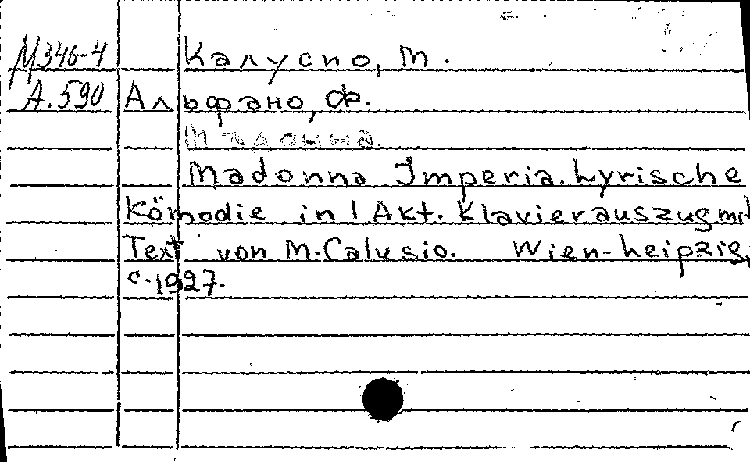 М346-4 Калусио, М.
А.590 Альфано, Ф.
Мадонна
Madonna Imperia. Lyrische
Kömodie in 1 Akt. Klavierauszug mit
Text von M. Calusio. Wien-Leipzig,
c.1927.